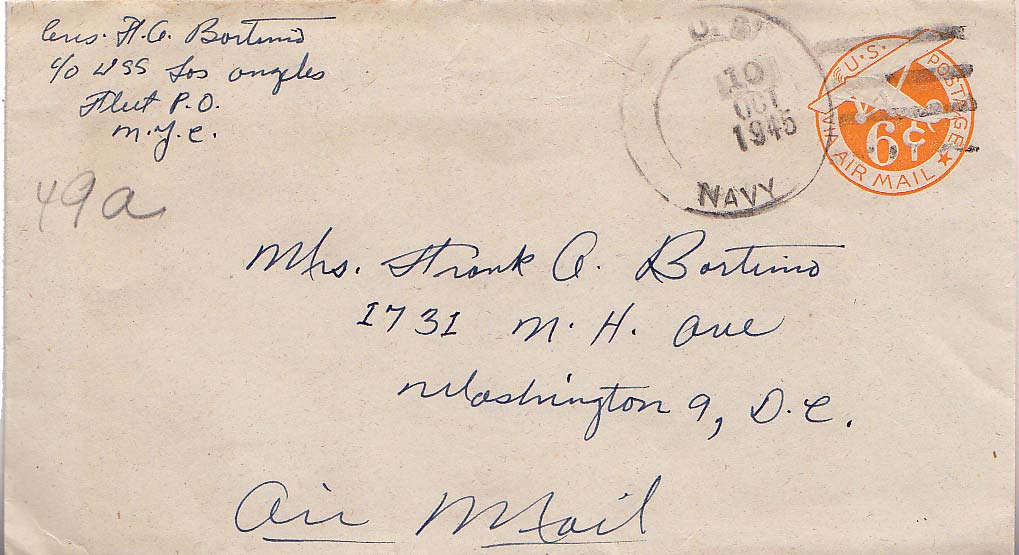 Ens. F. A. Bartimo
c/o USS Los Angeles
Fleet P.O.
N.Y.C.
49a
U.S.
10
OCT
1945
NAVY
U.S. POSTAGE
VIA AIR MAIL
6¢
Mrs. Frank A. Bartimo
1731 N. H. Ave
Washington 9, D.C.
Air Mail